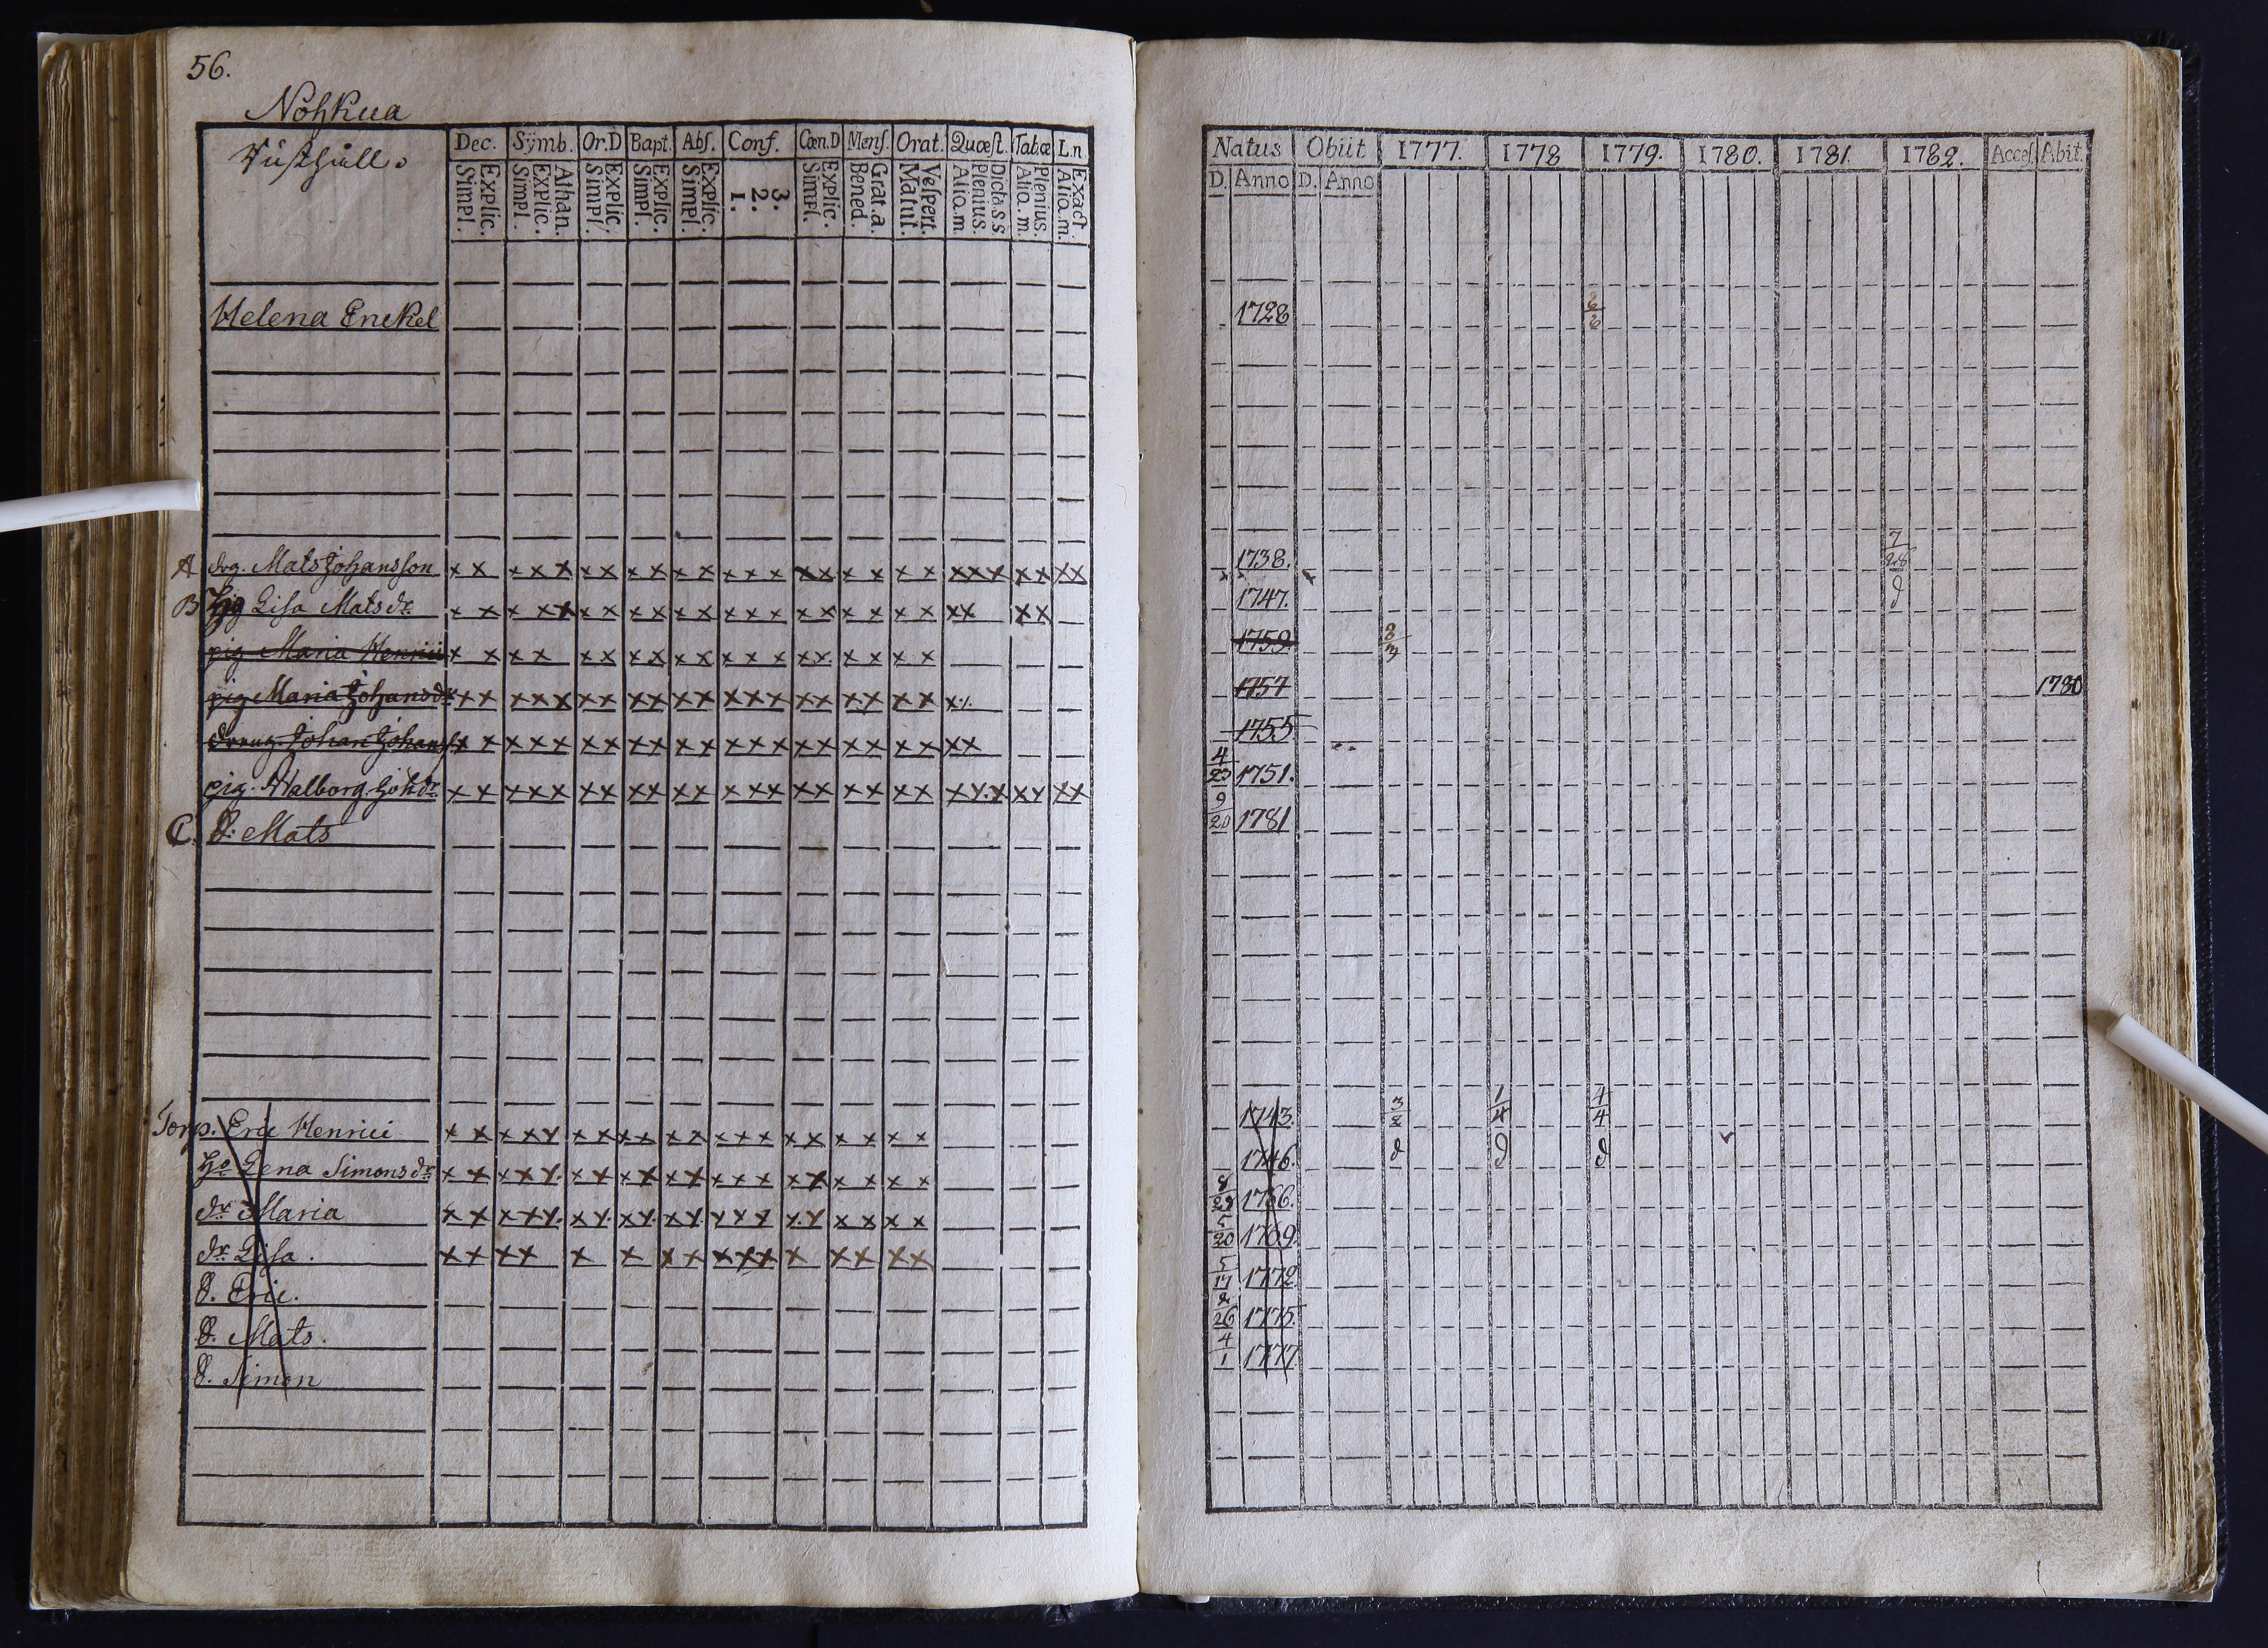 56.
Nohkua
Dec. Sÿmb. Or.D Bapt. Abſ. Conf. Cœn.D Menſ. Orat. Quœſt. Tabœ L.n
Explic. Simpl. Athan. Explic. Simpl. Explic. Simpl. Explic. Simpl. Explic. Simpl. 3. 2. 1. Explic. Simpl. Grat.a. Bened. Veſpert. Matut. Dicta.s.s Plenius. Alio.m Plenius. Alio.m. Exact. Alio.m.
Helena Enckel
A drg. Mats Johansſon x x x x x x x x x x x x x x x x x x x x x x x x x x x
B Hg Liſa Matsdr x x x x x x x x x x x x x x x x x x x x x x x x
pig Maria Henrici x x x x x x x x x x x x x x x x x x x
pig Maria Johansdr x x x x x x x x x x x x x x x x x x x x x
dreng. Johan Johansſ x x x x x x x x x x x x x x x x x x x x x x
pig. Walborg Johdr x x x x x x x x x x x x x x x x x x x x x x x x x x x
C. S: Mats
Torp. Eric Henrici x x x x y x x x x x x x x x x x x x x x
Ho Lena Simonsdr x x x x y. x x x x x x x x x x x x x x x
dr Maria x x x x y. x y. x y. x y. y x y x. y x x x x
dr Liſa. x x x x x x x x x x x x x x x x
S. Eric.
S. Mats.
S. Simon
Natus Obiit 1777. 1778 1779. 1780. 1781. 1782. Acceſ. Abit.
D. Anno D. Anno
1728
1738. 7/28
1747. d
1759
1757 1780
1755
4/23 1751.
9/20 1781
1743. 3/2 1/4 4/4
1746. d d d
8/29 1766.
5/20 1769.
5/17 1772
2/26 1775.
4/1 1777